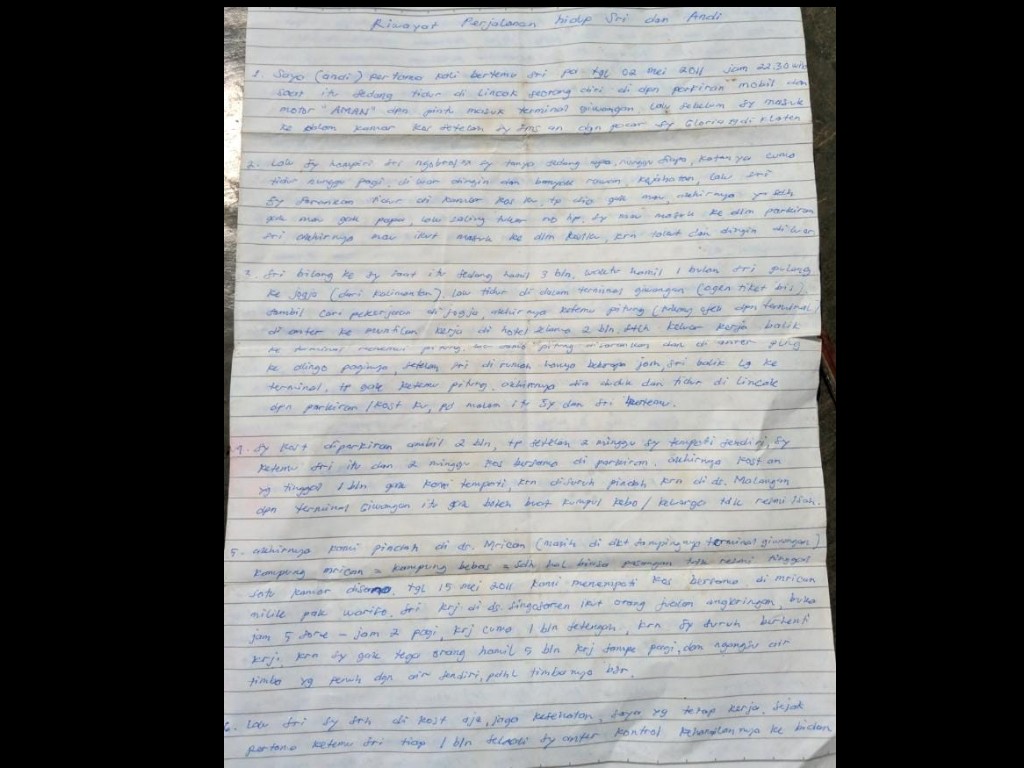 Riwayat Perjalanan hidup Sri dan Andi
1. Saya (andi) pertama kali bertemu Sri pa tgl 02 mei 2011 jam 22.30 wib
saat itu sedang tidur di Lincak seorang diri di dpn parkiran mobil dan
motor "AMAN" dpn pintu masuk terminal giwangan, lalu sebelum sy masuk
ke dalam kamar kos setelah sy sms an dgn pacar sy Gloria di Klaten
2. Lalu sy hampiri Sri sy tanya sedang apa, nunggu siapa, katanya cuma
tidur nunggu pagi, di luar dingin dan banyak rawan kejahatan, lalu Sri
sy tidur di kamar kos ku, tp dia gak mau, akhirnya ya sdh
gak mau gak papa, lalu saling tukar no hp, sy mau masuk ke dlm parkiran
Sri akhirnya mau ikut masuk ke dlm kosku, krn takut dan dingin di luar
3. Sri bilang ke sy saat itu sedang hamil 3 bln, waktu hamil 1 bulan Sri pulang
ke jogja (dari kalimantan), lalu tidur di dalam terminal giwangan (agen tiket bis)
sambil cari pekerjaan di jogja, akhirnya ketemu pitung ( ojek dpn terminal)
di anter ke muntilan kerja di hotel selama 2 bln, stlh keluar kerja balik
ke terminal menemui pitung, pitung dan di anter plng
ke dlingo paginya, setelah Sri di rumah hanya beberapa jam, Sri balik lg ke
terminal, tp gak ketemu pitung, akhirnya dia duduk dan tidur di lincak
dpn parkiran / kost ku, pd malam itu sy dan Sri ketemu.
4. Sy kost diparkiran ambil 2 bln, tp setelah 2 minggu sy tempati sendiri, sy
ketemu Sri itu dan 2 minggu kos bersama di parkiran, akhirnya kost an
yg tinggal 1 bln gak kami tempati, krn disuruh pindah, krn di ds. Malangan
dpn terminal Giwangan itu gak boleh buat kumpul kebo / keluarga tdk resmi / sah.
5. akhirnya kami pindah di ds. Mrican (masih di dkt sampingnya terminal giwangan)
kampung mrican = kampung bebas = sdh hal biasa pasangan tdk resmi tinggal
satu kamar disana, tgl 15 mei 2011 kami menempati kos bersama di mrican
milik pak Warito, Sri krj di ds. Singosaren ikut orang jualan angkringan, buka
jam 5 sore - jam 2 pagi, krj cuma 1 bln setengah, krn sy suruh berhenti
krj, krn sy gak tega orang hamil 5 bln krj sampe pagi, dan ngangsu air
timba yg penuh dgn air sendiri, pdhl timbanya bsr.
6. lalu Sri sy srh di kost aja, jaga kesehatan, saya yg tetap kerja, sejak
pertama ketemu Sri tiap 1 bln sekali sy anter kontrol kehamilannya ke bidan